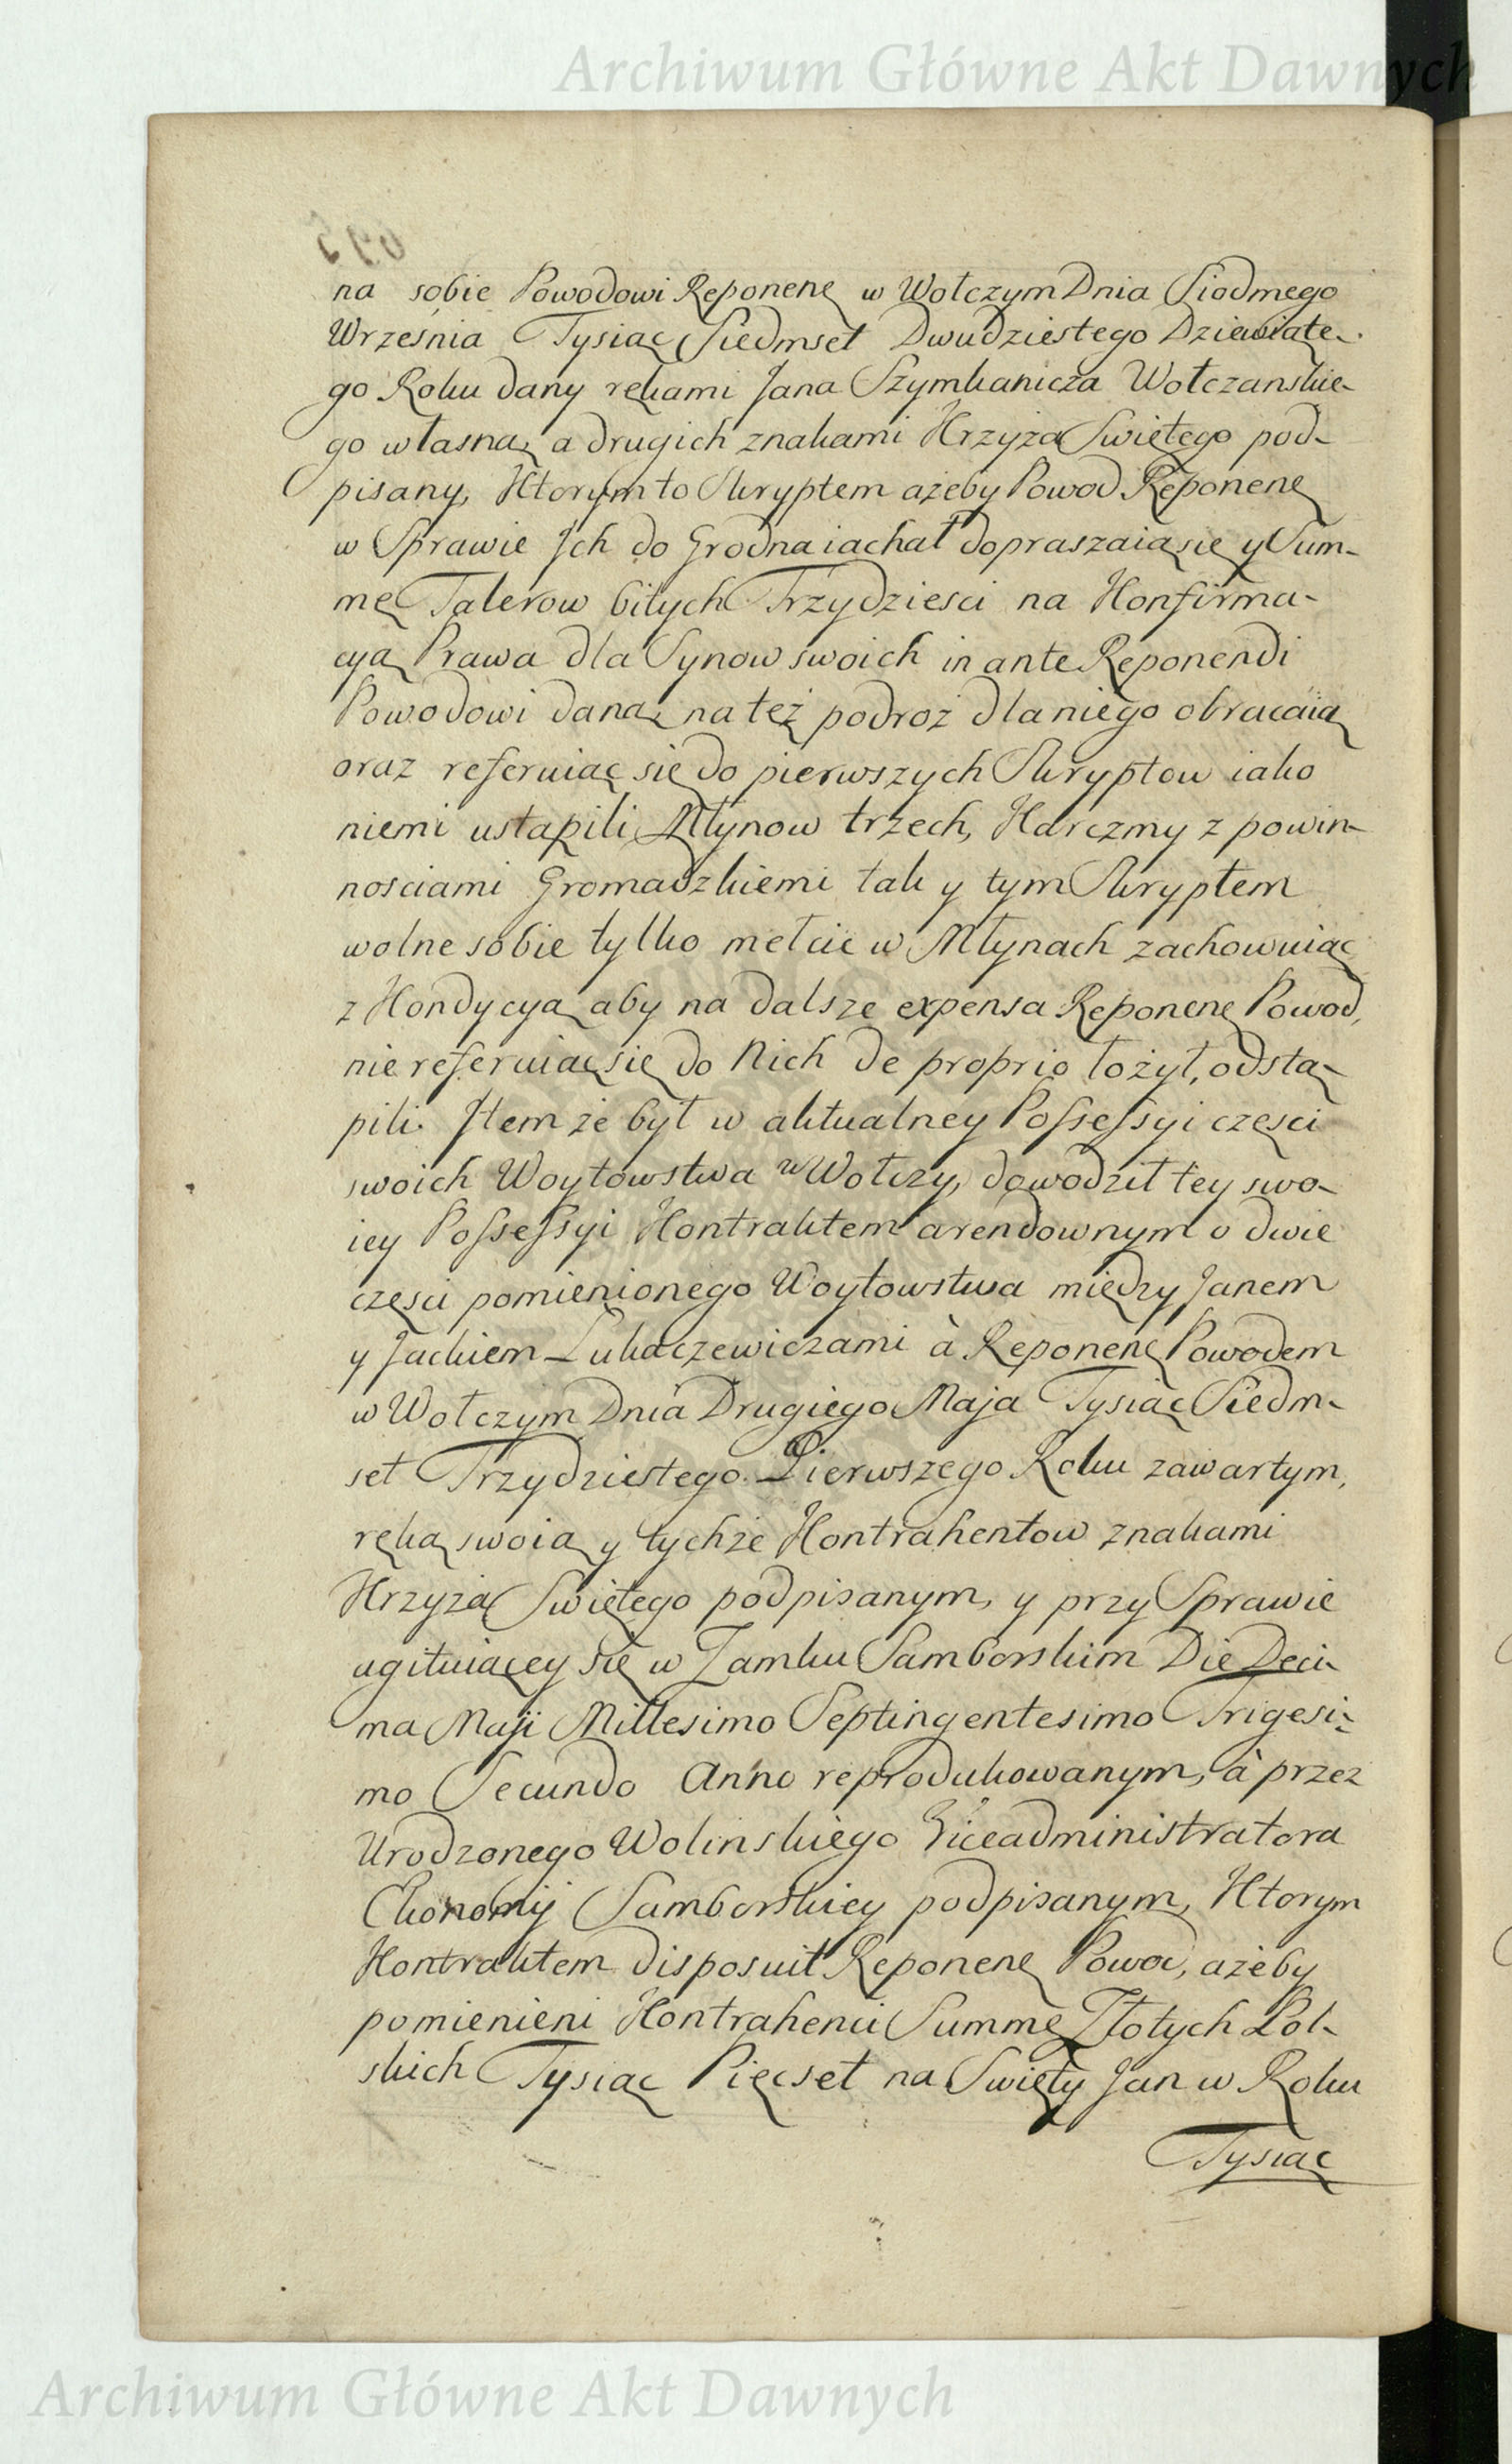 Archiwum Główne Akt Dawnych
na sobie Powodowi Reponenę w Wołczym Dnia Siodmego
Września Tysiąc Siedmset Dwudziestego Dziewiąte-
go Roku dany rękami Jana Szymkanicza Wołczanskie-
go własną a drugich znakami Krzyża Swiętego pod-
pisany, Ktorym to Skryptem ażeby Powod Reponenę
w Sprawie Jch do Grodna iachał dopraszaią się y Sum-
mę Talerow bitych Trzydziesci na Konfirma-
cyą Prawa dla Synow swoich in ante Reponendi
Powodowi daną na też podroż dla niego obracaią
oraz referuiąc się do pierwszych Skryptow iako
niemi ustąpili Młynow trzech, Karczmy z powin-
nosciami Gromadzkiemi tak y tym Skryptem
wolne sobie tylko melcie w Młynach zachowuiąc
z Kondycyą aby na dalsze expensa Reponenę Powod,
nie referuiąc się do Nich de proprio łożył, odstą-
pili. Jtem że był w aktualney Possessyi częsci
swoich Woytowstwa w Wołczy, dowodził tey swo-
iey Possessyi Kontraktem arendownym o dwie
częsci pomienionego Woytowstwa między Janem
y Jackiem Lukaczewiczami à Reponenę Powodem
w Wołczym Dnia Drugiego Maja Tysiąc Siedm-
set Trzydziestego Pierwszego Roku zawartym,
ręką swoią y tychże Kontrahentow znakami
Krzyża Swiętego podpisanym, y przy Sprawie
agituiącey się w Zamku Samborskim Die Deci-
ma Maji Millesimo Septingentesimo Trigesi-
mo Secundo Anno reprodukowanym, à przez
Urodzonego Wolinskiego Viceadministratora
Ekonomij Samborskiey podpisanym, Ktorym
Kontraktem disposuit Reponenę Powod, ażeby
pomienieni Kontrahenci Summę Złotych Pol-
skich Tysiąc Pięcset na Swięty Jan w Roku
Tysiąc
Archiwum Główne Akt Dawnych